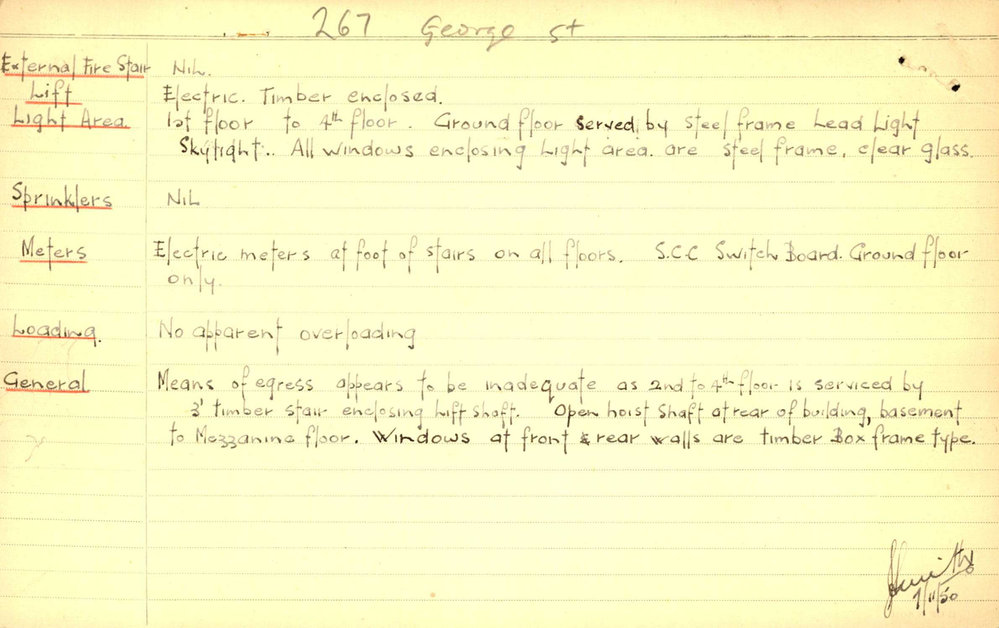 267 George St
External Fire Stair Nil.
Lift Electric. Timber enclosed.
Light Area 1st floor to 4th floor. Ground floor served by steel frame Lead Light
Skylight. All windows enclosing Light area. are steel frame, clear glass.
Sprinklers Nil
Meters Electric meters at foot of stairs on all floors. S.C.C Switch Board. Ground floor
only.
Loading. No apparent overloading
General Means of egress appears to be inadequate as 2nd to 4th floor is serviced by
3' timber stair enclosing Lift shaft. Open hoist shaft at rear of building, basement
to Mezzanine floor. Windows at front & rear walls are timber Box frame type.
7/11/50